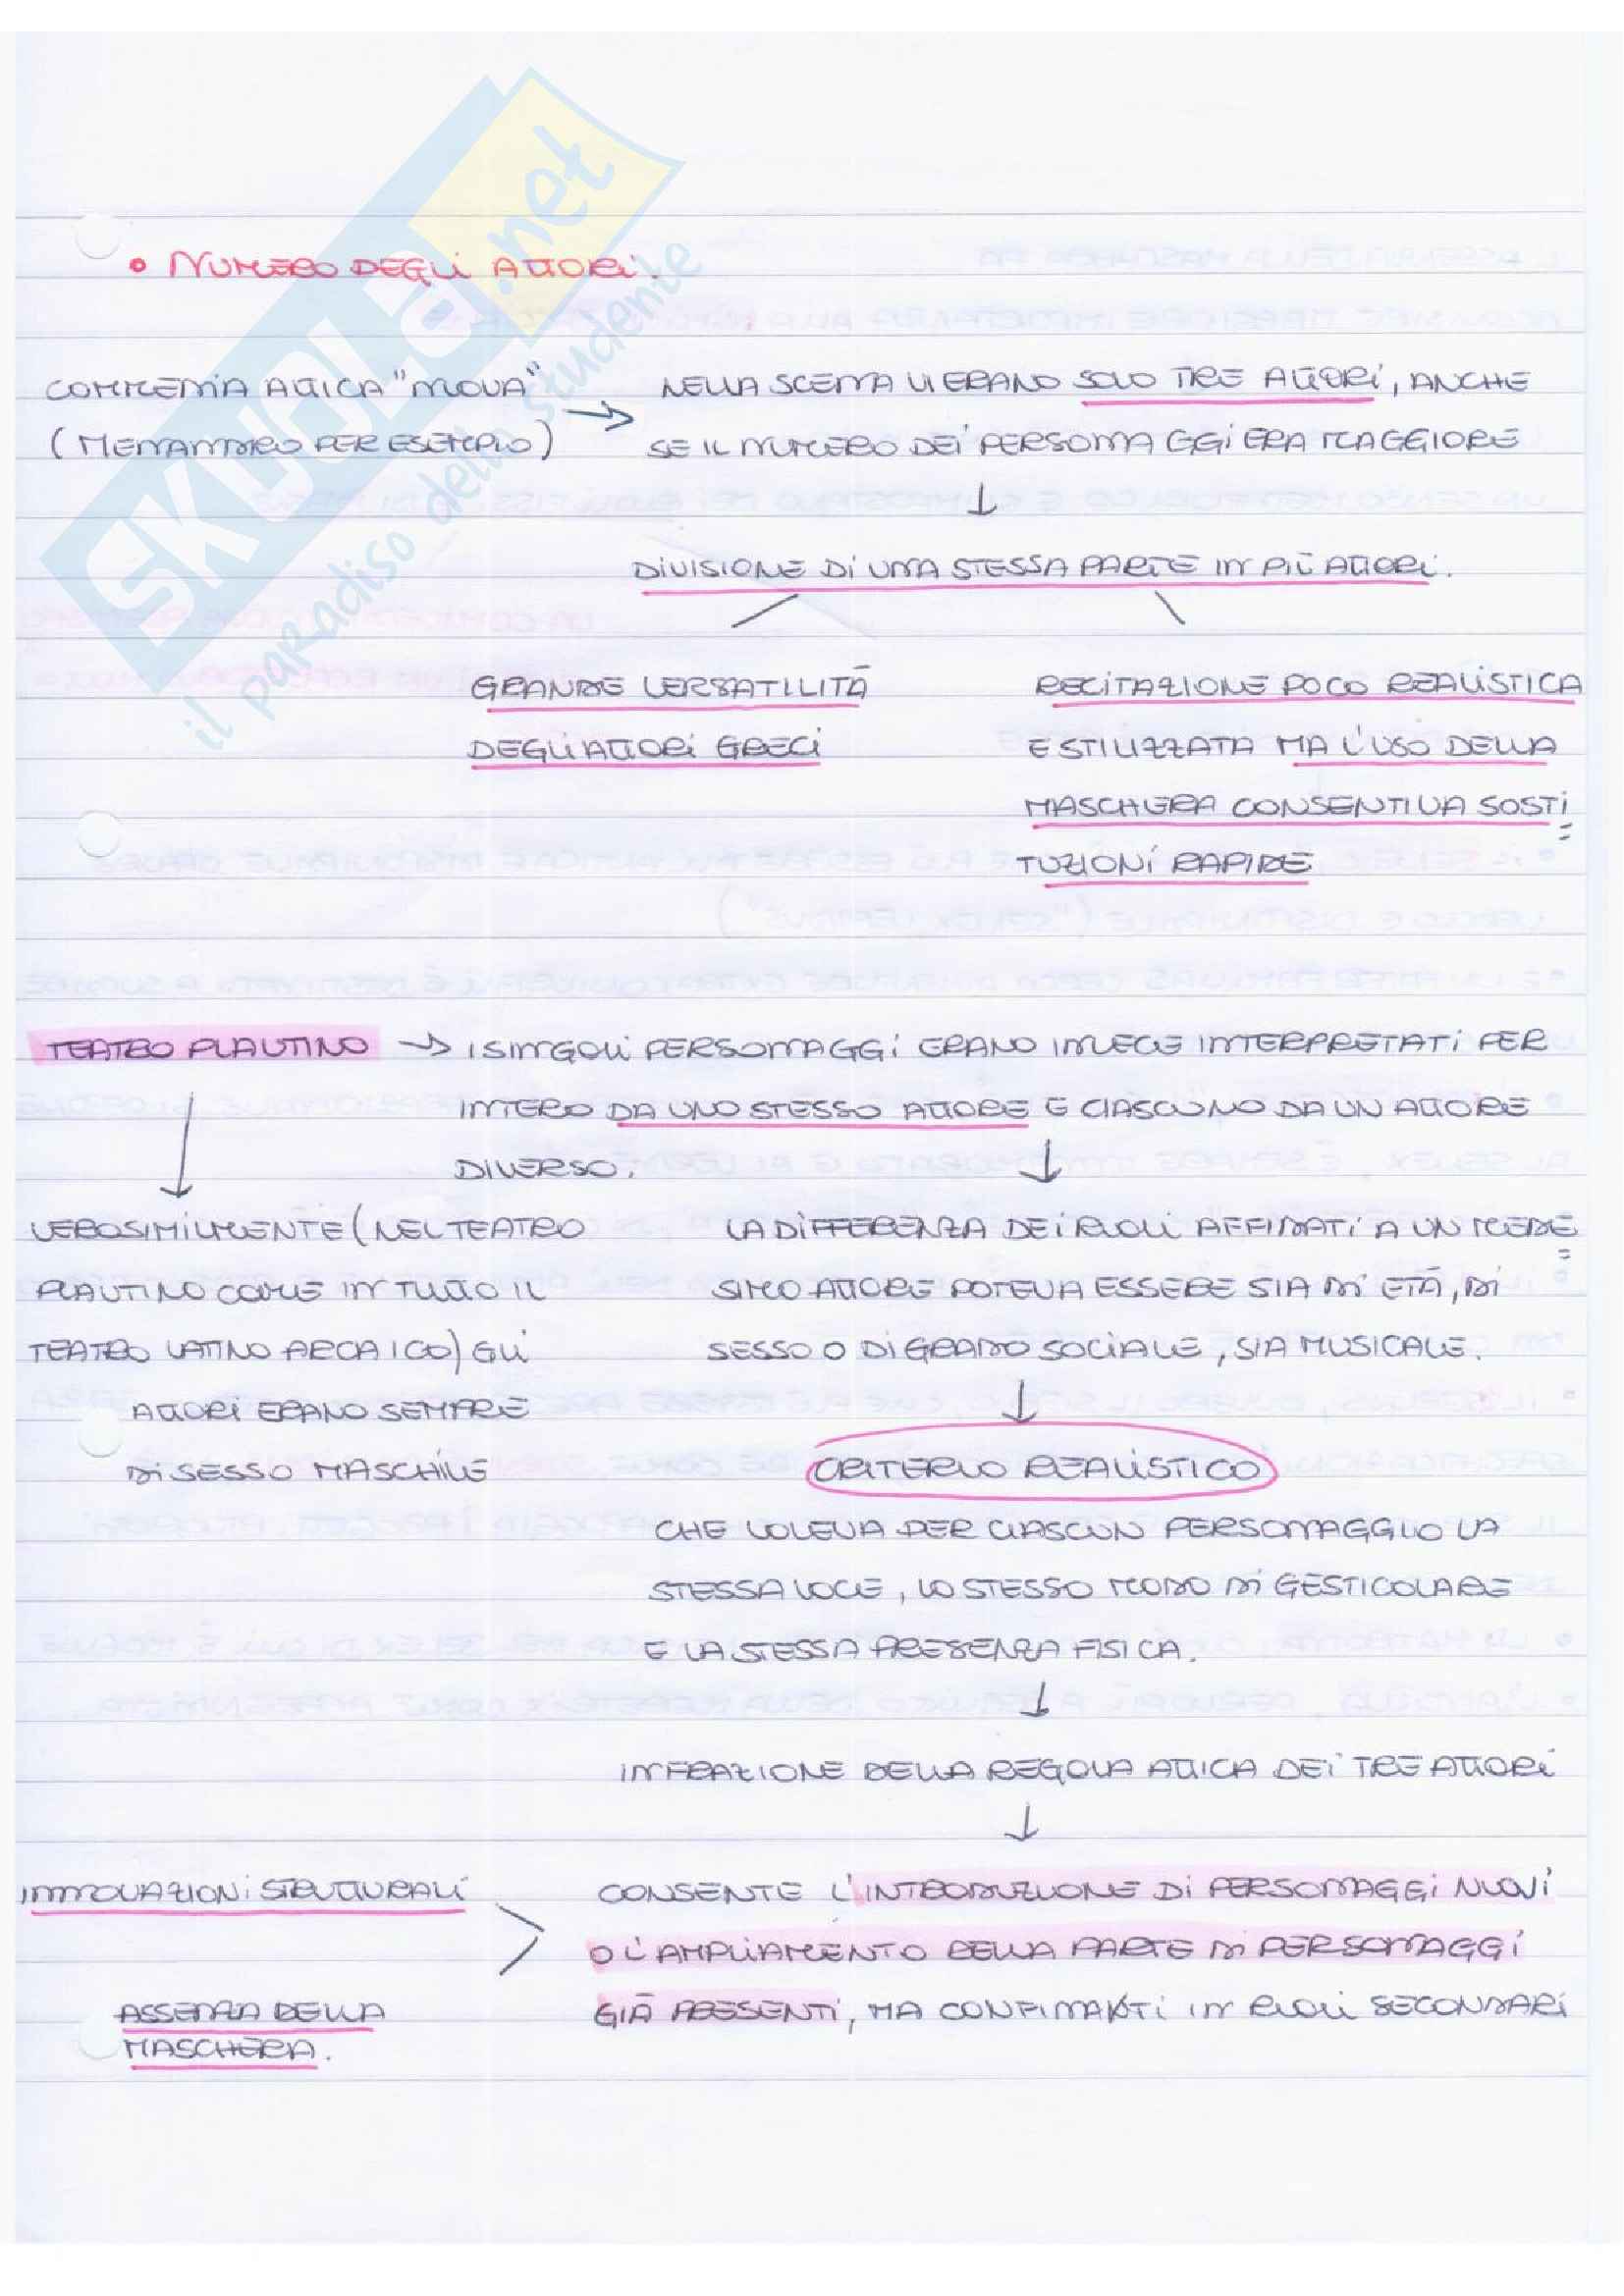 SKUOLA.net
il paradiso dello studente
• NUMERO DEGLI ATTORI.
COMMEDIA ATTICA "NUOVA"
(MENANDRO PER ESEMPIO)
→
NELLA SCENA VI ERANO SOLO TRE ATTORI, ANCHE
SE IL NUMERO DEI PERSONAGGI ERA MAGGIORE
↓
DIVISIONE DI UNA STESSA PARTE IN PIÙ ATTORI.
GRANDE VERSATILITÀ
DEGLI ATTORI GRECI
RECITAZIONE POCO REALISTICA
E STILIZZATA MA L'USO DELLA
MASCHERA CONSENTIVA SOSTI=
TUZIONI RAPIDE
TEATRO PLAUTINO → I SINGOLI PERSONAGGI ERANO INVECE INTERPRETATI PER
INTERO DA UNO STESSO ATTORE E CIASCUNO DA UN ATTORE
DIVERSO.
↓
VEROSIMILMENTE (NEL TEATRO
PLAUTINO COME IN TUTTO IL
TEATRO LATINO ARCAICO) GLI
ATTORI ERANO SEMPRE
DI SESSO MASCHILE
↓
LA DIFFERENZA DEI RUOLI AFFIDATI A UN MEDE=
SIMO ATTORE POTEVA ESSERE SIA DI ETÀ, DI
SESSO O DI GRADO SOCIALE, SIA MUSICALE.
↓
CRITERIO REALISTICO
CHE VOLEVA PER CIASCUN PERSONAGGIO LA
STESSA VOCE, LO STESSO MODO DI GESTICOLARE
E LA STESSA PRESENZA FISICA.
↓
INFRAZIONE DELLA REGOLA ATTICA DEI TRE ATTORI
↓
INNOVAZIONI STRUTTURALI
ASSENZA DELLA
MASCHERA.
CONSENTE L'INTRODUZIONE DI PERSONAGGI NUOVI
O L'AMPLIAMENTO DELLA PARTE DI PERSONAGGI
GIÀ PRESENTI, MA CONFINANTI IN RUOLI SECONDARI